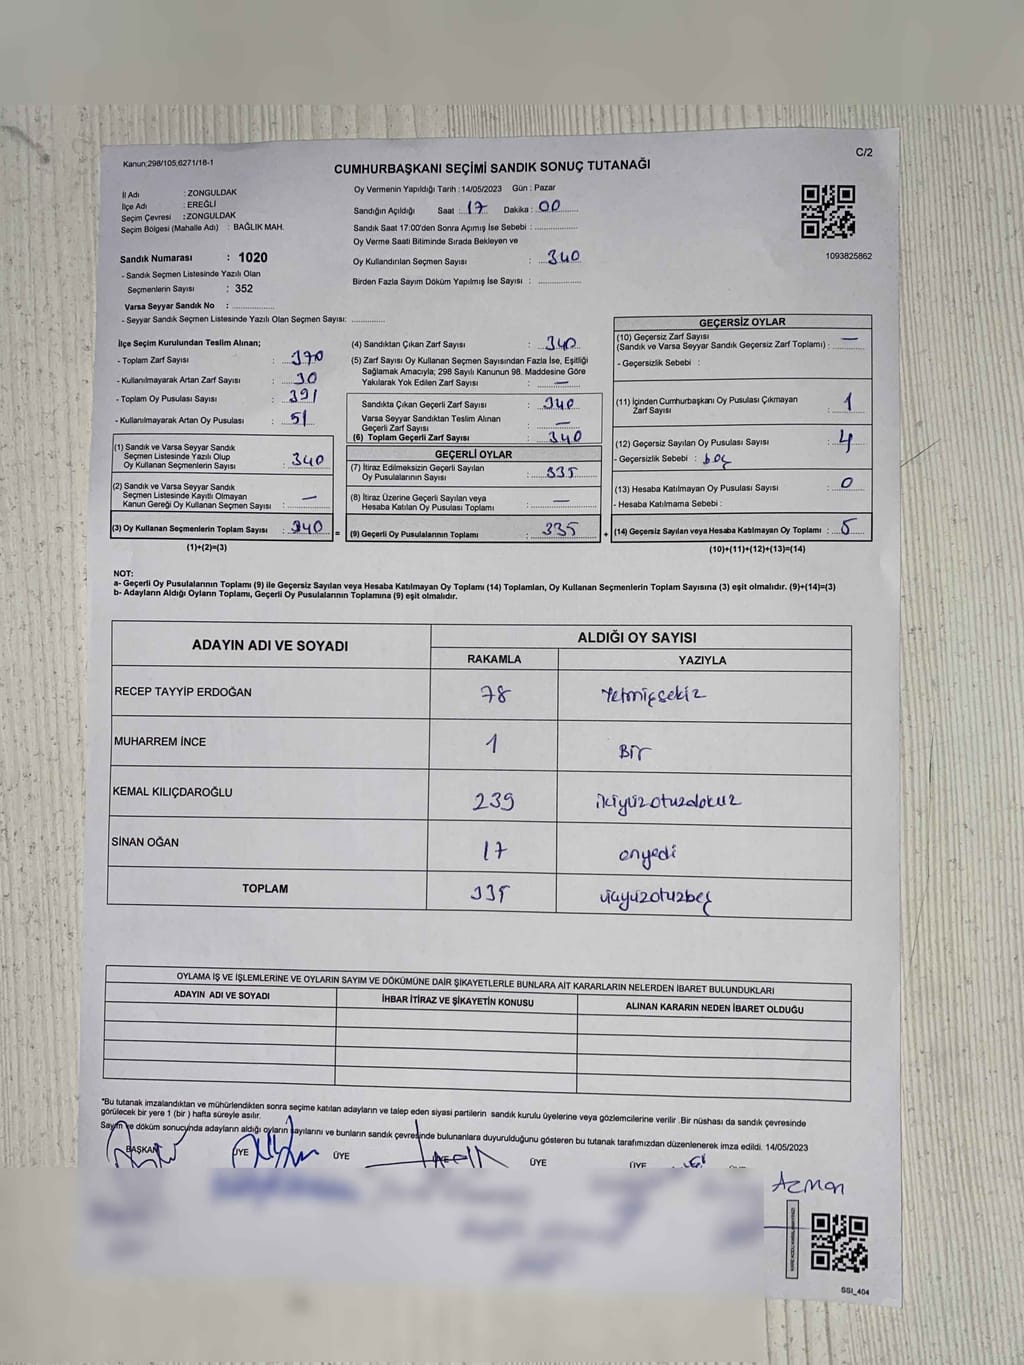 Kanun;298/105,6271/18-1
C/2
CUMHURBAŞKANI SEÇİMİ SANDIK SONUÇ TUTANAĞI
İl Adı : ZONGULDAK
İlçe Adı : EREĞLİ
Seçim Çevresi : ZONGULDAK
Seçim Bölgesi (Mahalle Adı) : BAĞLIK MAH.
Sandık Numarası : 1020
- Sandık Seçmen Listesinde Yazılı Olan
Seçmenlerin Sayısı : 352
Varsa Seyyar Sandık No :
- Seyyar Sandık Seçmen Listesinde Yazılı Olan Seçmen Sayısı:
Oy Vermenin Yapıldığı Tarih : 14/05/2023 Gün : Pazar
Sandığın Açıldığı Saat : 17 Dakika : 00
Sandık Saat 17:00'den Sonra Açımış İse Sebebi :
Oy Verme Saati Bitiminde Sırada Bekleyen ve
Oy Kullandırılan Seçmen Sayısı : 340
Birden Fazla Sayım Döküm Yapılmış İse Sayısı :
1093825862
İlçe Seçim Kurulundan Teslim Alınan;
- Toplam Zarf Sayısı : 370
- Kullanılmayarak Artan Zarf Sayısı : 30
- Toplam Oy Pusulası Sayısı : 391
- Kullanılmayarak Artan Oy Pusulası : 51
(1) Sandık ve Varsa Seyyar Sandık
Seçmen Listesinde Yazılı Olup
Oy Kullanan Seçmenlerin Sayısı : 340
(2) Sandık ve Varsa Seyyar Sandık
Seçmen Listesinde Kayıtlı Olmayan
Kanun Gereği Oy Kullanan Seçmen Sayısı : —
(3) Oy Kullanan Seçmenlerin Toplam Sayısı : 340 =
(1)+(2)=(3)
(4) Sandıktan Çıkan Zarf Sayısı : 340
(5) Zarf Sayısı Oy Kullanan Seçmen Sayısından Fazla İse, Eşitliği
Sağlamak Amacıyla; 298 Sayılı Kanunun 98. Maddesine Göre
Yakılarak Yok Edilen Zarf Sayısı : —
Sandıkta Çıkan Geçerli Zarf Sayısı : 340
Varsa Seyyar Sandıktan Teslim Alınan
Geçerli Zarf Sayısı : —
(6) Toplam Geçerli Zarf Sayısı : 340
GEÇERLİ OYLAR
(7) İtiraz Edilmeksizin Geçerli Sayılan
Oy Pusulalarının Sayısı : 335
(8) İtiraz Üzerine Geçerli Sayılan veya
Hesaba Katılan Oy Pusulası Toplamı : —
(9) Geçerli Oy Pusulalarının Toplamı : 335 +
GEÇERSİZ OYLAR
(10) Geçersiz Zarf Sayısı
(Sandık ve Varsa Seyyar Sandık Geçersiz Zarf Toplamı) : —
- Geçersizlik Sebebi :
(11) İçinden Cumhurbaşkanı Oy Pusulası Çıkmayan
Zarf Sayısı : 1
(12) Geçersiz Sayılan Oy Pusulası Sayısı : 4
- Geçersizlik Sebebi : boş
(13) Hesaba Katılmayan Oy Pusulası Sayısı : 0
- Hesaba Katılmama Sebebi :
(14) Geçersiz Sayılan veya Hesaba Katılmayan Oy Toplamı : 5
(10)+(11)+(12)+(13)=(14)
NOT:
a- Geçerli Oy Pusulalarının Toplamı (9) ile Geçersiz Sayılan veya Hesaba Katılmayan Oy Toplamı (14) Toplamları, Oy Kullanan Seçmenlerin Toplam Sayısına (3) eşit olmalıdır. (9)+(14)=(3)
b- Adayların Aldığı Oyların Toplamı, Geçerli Oy Pusulalarının Toplamına (9) eşit olmalıdır.
ADAYIN ADI VE SOYADI
ALDIĞI OY SAYISI
RAKAMLA YAZIYLA
RECEP TAYYİP ERDOĞAN 78 Yetmişsekiz
MUHARREM İNCE 1 Bir
KEMAL KILIÇDAROĞLU 239 ikiyüzotuzdokuz
SİNAN OĞAN 17 onyedi
TOPLAM 335 üçyüzotuzbeş
OYLAMA İŞ VE İŞLEMLERİNE VE OYLARIN SAYIM VE DÖKÜMÜNE DAİR ŞİKAYETLERLE BUNLARA AİT KARARLARIN NELERDEN İBARET BULUNDUKLARI
ADAYIN ADI VE SOYADI İHBAR İTİRAZ VE ŞİKAYETİN KONUSU ALINAN KARARIN NEDEN İBARET OLDUĞU
"Bu tutanak imzalandıktan ve mühürlendikten sonra seçime katılan adayların ve talep eden siyasi partilerin sandık kurulu üyelerine veya gözlemcilerine verilir .Bir nüshası da sandık çevresinde
görülecek bir yere 1 (bir ) hafta süreyle asılır.
Sayım ve döküm sonucunda adayların aldığı oyların sayılarını ve bunların sandık çevresinde bulunanlara duyurulduğunu gösteren bu tutanak tarafımızdan düzenlenerek imza edildi. 14/05/2023
BAŞKAN ÜYE ÜYE ÜYE ÜYE
Azman
SSI_404